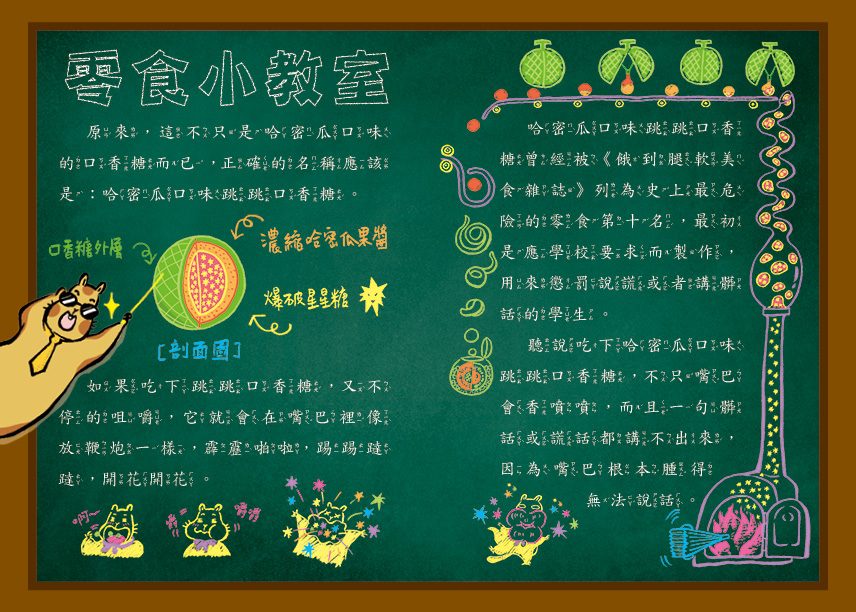 零食小教室
原來，這不只是哈密瓜口味
的口香糖而已，正確的名稱應該
是：哈密瓜口味跳跳口香糖。
口香糖外層
濃縮哈密瓜果醬
爆破星星糖
[剖面圖]
如果吃下跳跳口香糖，又不
停的咀嚼，它就會在嘴巴裡像
放鞭炮一樣，霹靂啪啦，踢踢躂
躂，開花開花。
哈密瓜口味跳跳口香
糖曾經被《餓到腿軟美
食雜誌》列為史上最危
險的零食第十名，最初
是應學校要求而製作，
用來懲罰說謊或者講髒
話的學生。
聽說吃下哈密瓜口味
跳跳口香糖，不只嘴巴
會香噴噴，而且一句髒
話或謊話都講不出來，
因為嘴巴根本腫得
無法說話。